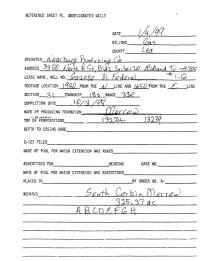 REFERENCE SHEET FOR UNDESIGNATED WELLS
DATE 1/4/99
OIL/GAS Gas
COUNTY Lea
OPERATOR Amerbags Producing Co
ADDRESS 3300 North A St. Bldg
LEASE NAME, WELL NO. Gazelle 31 Federal #1-G
FOOTAGE LOCATION 1980 FROM THE N LINE AND 1650 FROM THE E LINE
SECTION 31 TOWNSHIP 18s RANGE 33E
COMPLETION DATE 10/3/98
NAME OF PRODUCING FORMATION Morrow
TOP OF PERFORATIONS 13224 13239
DEPTH TO CASING SHOE
C-123 FILED
NAME OF POOL FOR WHICH EXTENSION WAS ASKED
ADVERTISED FOR HEARING CASE NO.
NAME OF POOL FOR WHICH EXTENSION WAS ADVERTISED
PLACED IN BY ORDER NO. R-
REMARKS South Corbin Morrow
325.37 ac
A B C D E F G H